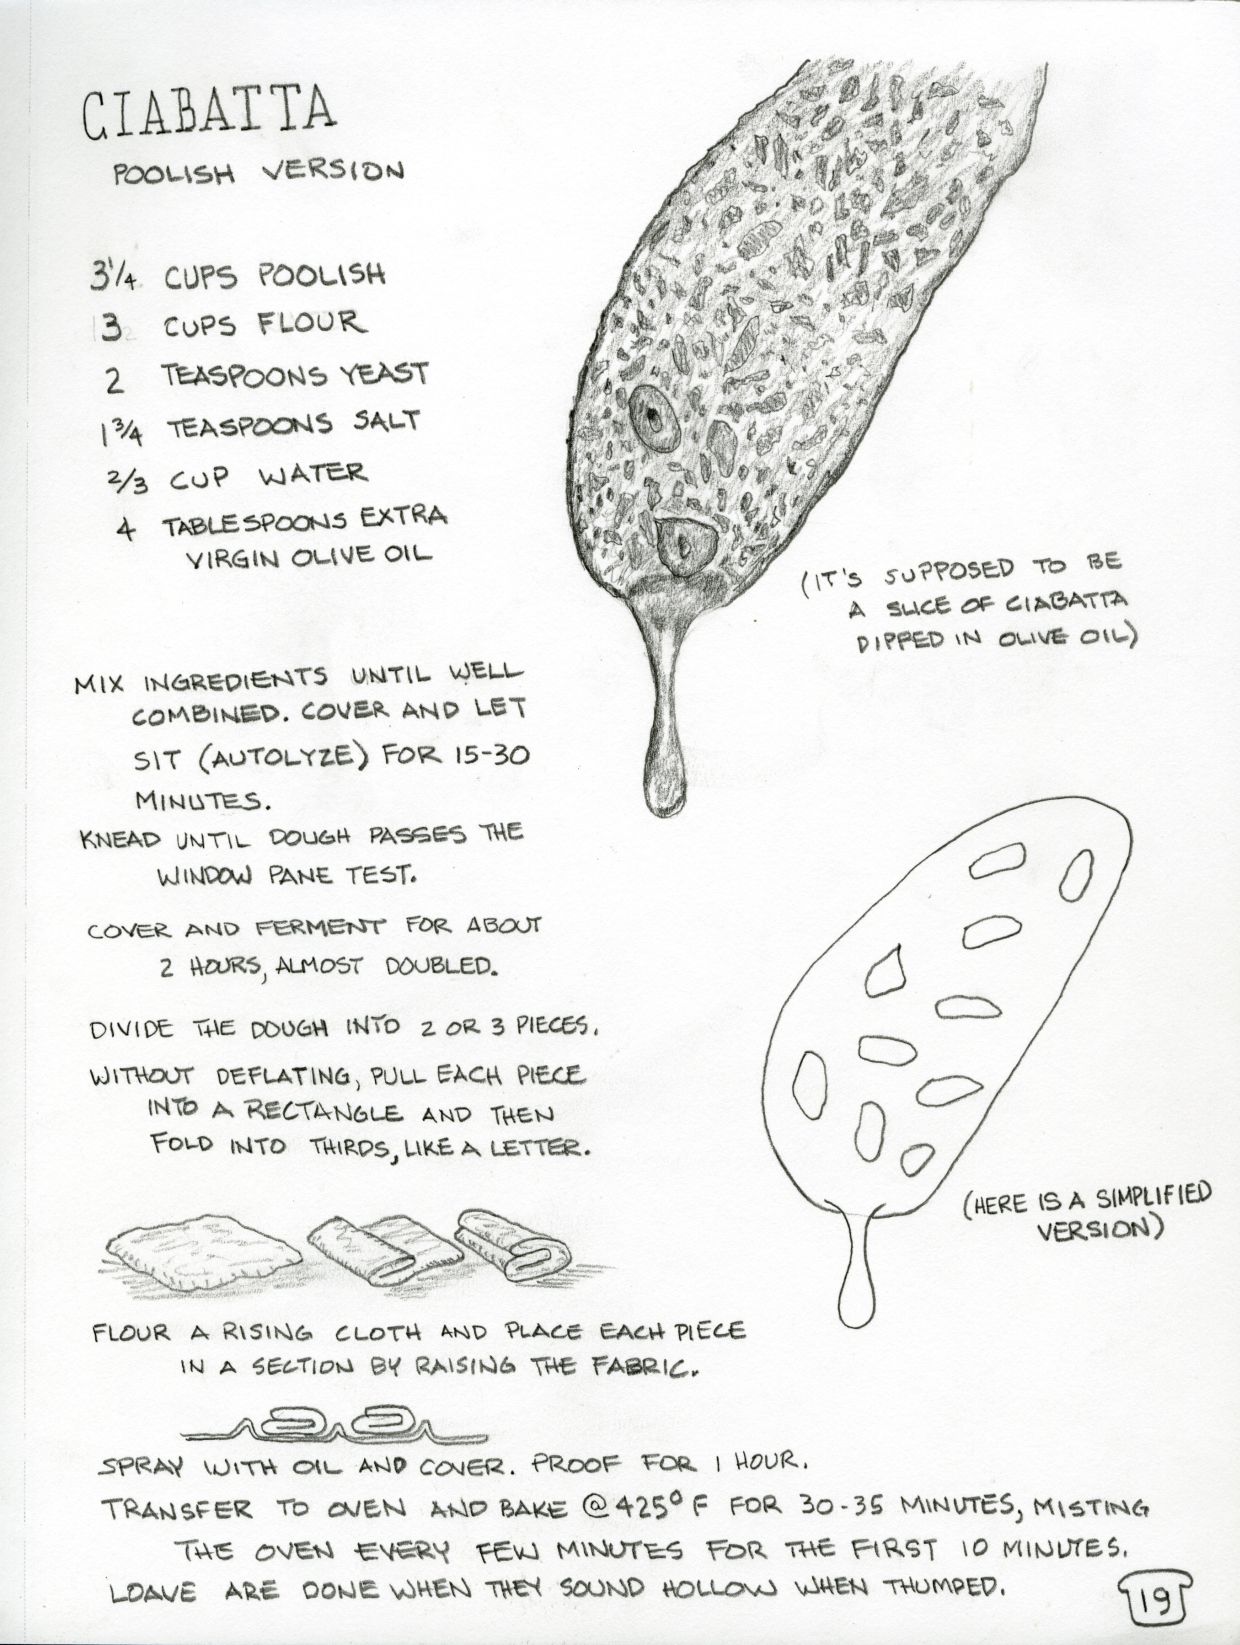 CIABATTA
POOLISH VERSION
3 1/4 CUPS POOLISH
3 CUPS FLOUR
2 TEASPOONS YEAST
1 3/4 TEASPOONS SALT
2/3 CUP WATER
4 TABLESPOONS EXTRA
VIRGIN OLIVE OIL
(IT'S SUPPOSED TO BE
A SLICE OF CIABATTA
DIPPED IN OLIVE OIL)
MIX INGREDIENTS UNTIL WELL
COMBINED. COVER AND LET
SIT (AUTOLYZE) FOR 15-30
MINUTES.
KNEAD UNTIL DOUGH PASSES THE
WINDOW PANE TEST.
COVER AND FERMENT FOR ABOUT
2 HOURS, ALMOST DOUBLED.
DIVIDE THE DOUGH INTO 2 OR 3 PIECES.
WITHOUT DEFLATING, PULL EACH PIECE
INTO A RECTANGLE AND THEN
FOLD INTO THIRDS, LIKE A LETTER.
(HERE IS A SIMPLIFIED
VERSION)
FLOUR A RISING CLOTH AND PLACE EACH PIECE
IN A SECTION BY RAISING THE FABRIC.
SPRAY WITH OIL AND COVER. PROOF FOR 1 HOUR.
TRANSFER TO OVEN AND BAKE @ 425° F FOR 30-35 MINUTES, MISTING
THE OVEN EVERY FEW MINUTES FOR THE FIRST 10 MINUTES.
LOAVE ARE DONE WHEN THEY SOUND HOLLOW WHEN THUMPED.
19